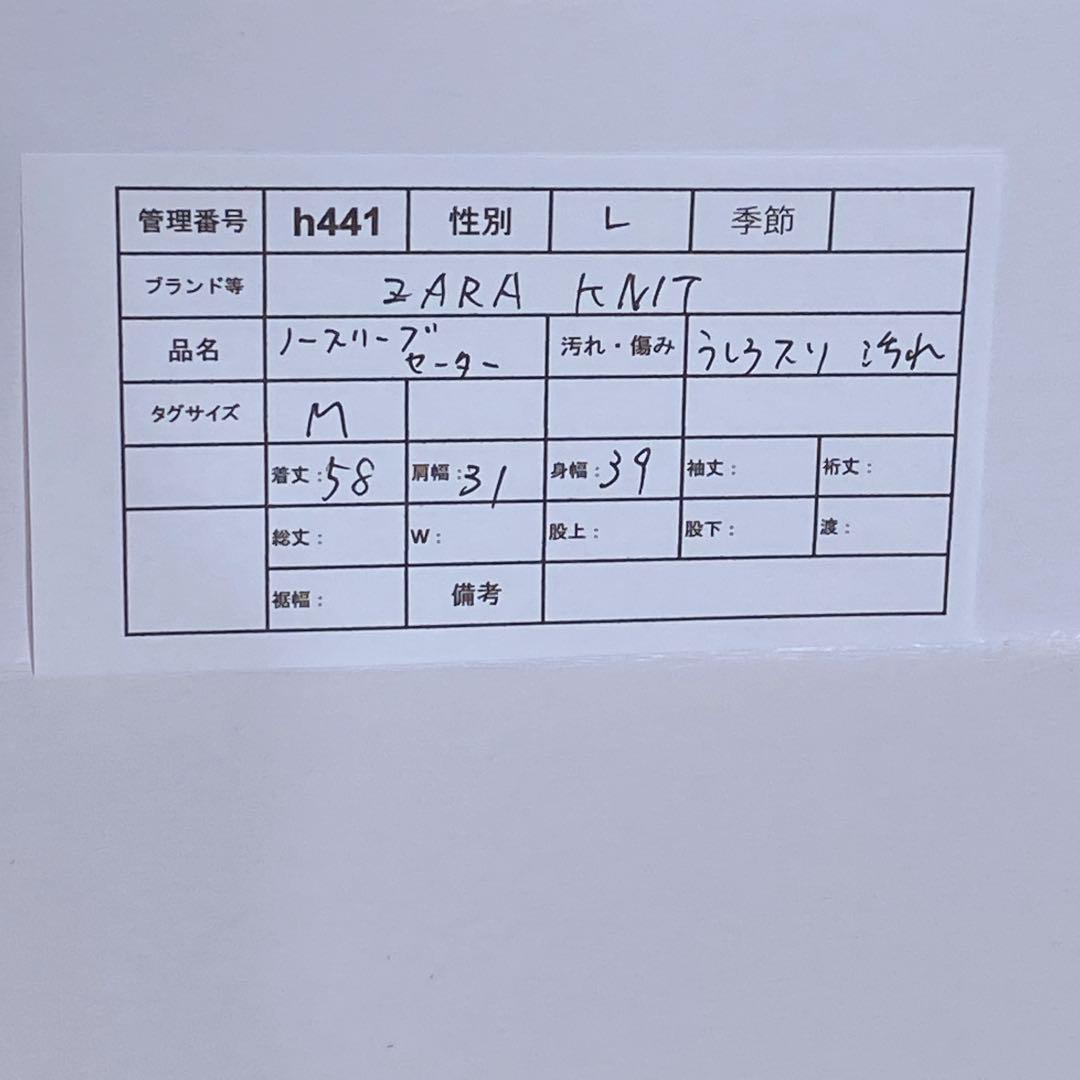 管理番号 h441 性別 L 季節
ブランド等 ZARA KNIT
品名 ノースリーブ セーター 汚れ・傷み うしろスソ 汚れ
タグサイズ M
着丈：58 肩幅：31 身幅：39 袖丈： 裄丈：
総丈： W： 股上： 股下： 渡：
裾幅： 備考